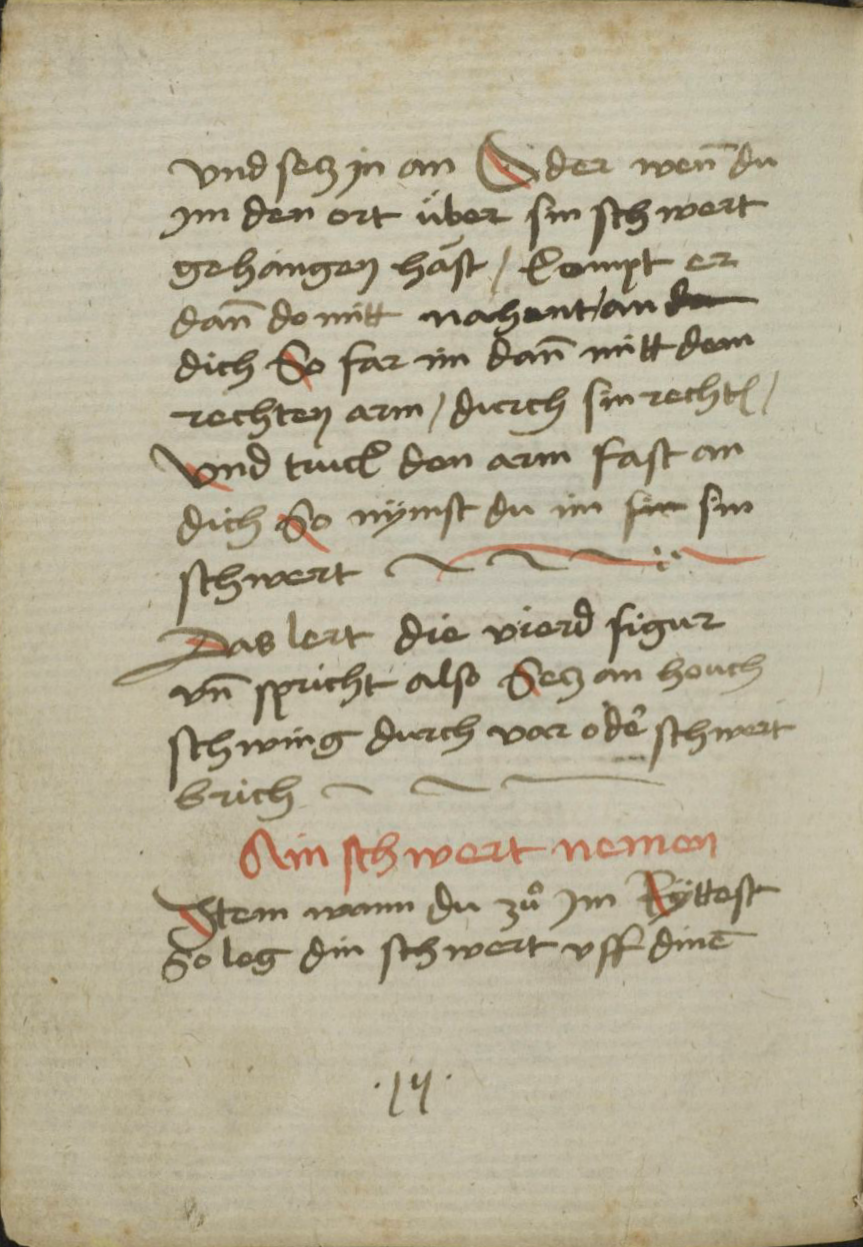 vnd secz in an Oder wen̄ du
im den ort über sin schwert
gehangen hăst / kompt er
dan̄ do mitt nahent / an de
dich So far im dan̄ mitt dem
rechten arm / durch sin recht /
Vnd truck den arm fast an
dich So nÿmst du im sin sin
schwert
Das lert die vierd figur
vn̄ spricht also Secz an houch
schwing durch var oder̉ schwert
brich
Ain schwert nemen
Item wann du zů im Ryttest
So leg din schwert vff dinē